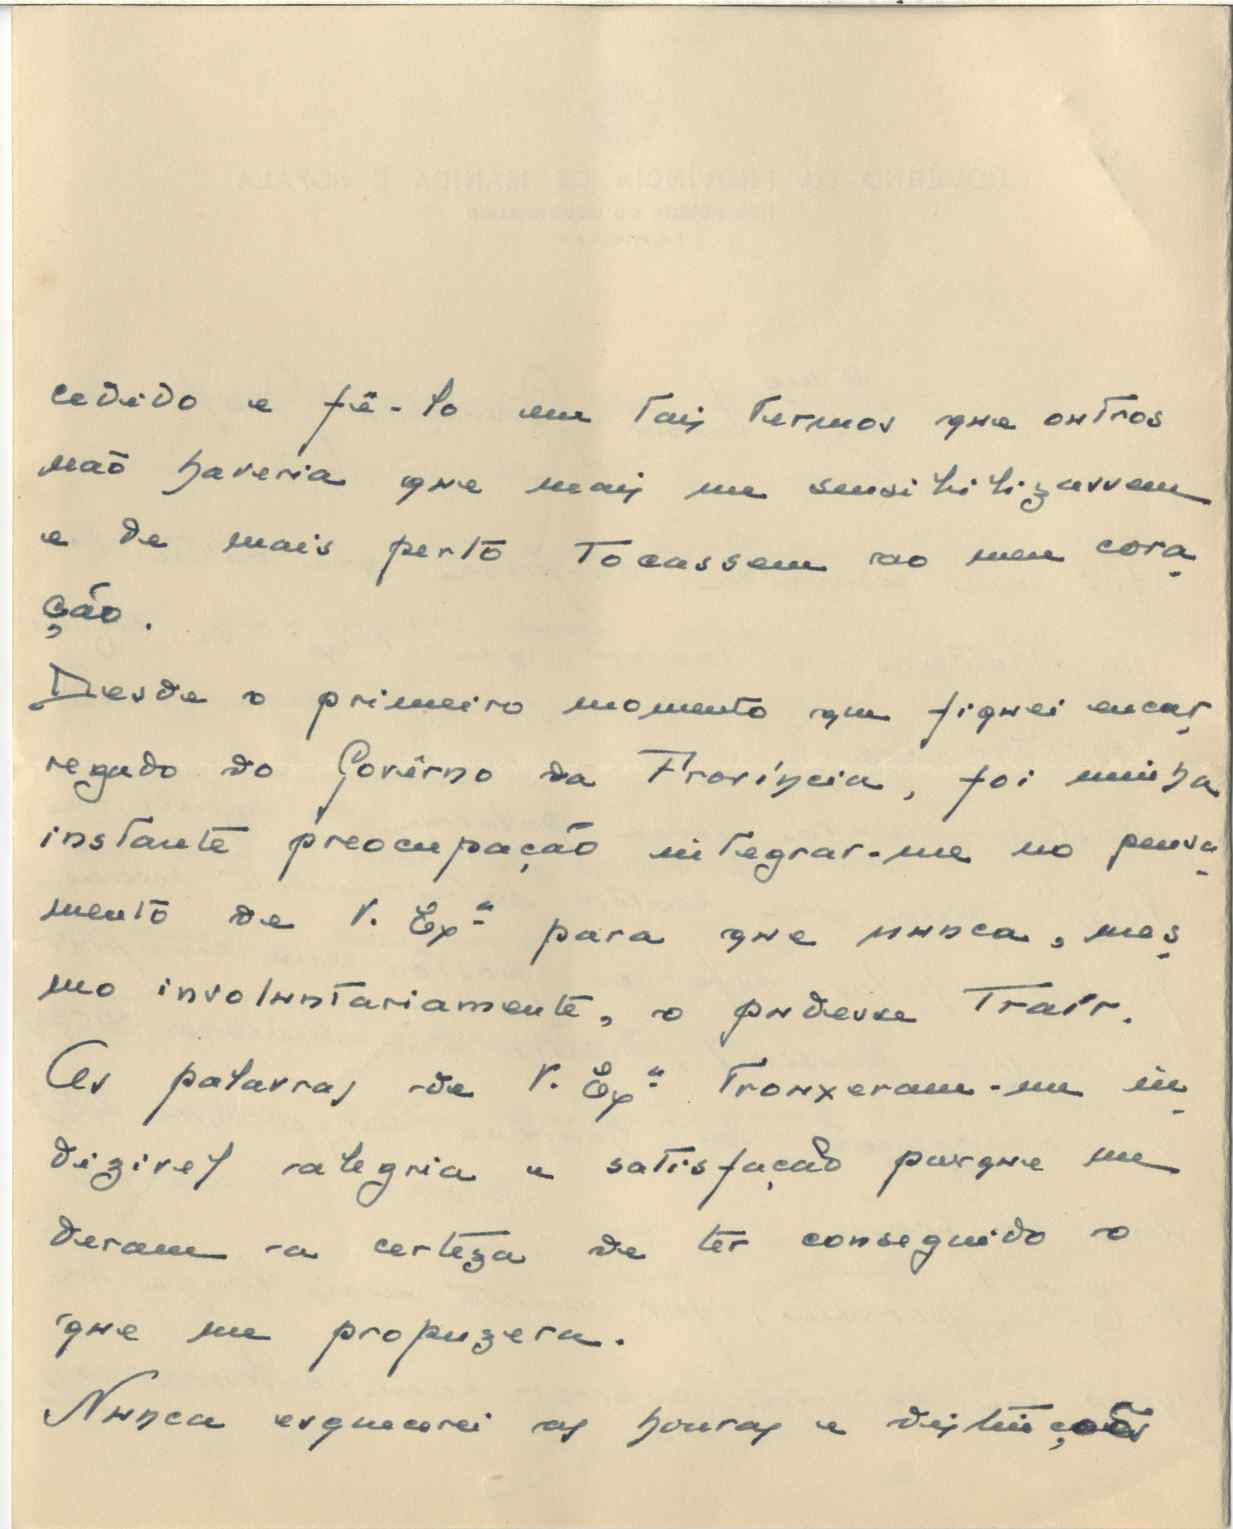 cedido e fê-lo em tais termos que outros
não haveria que mais me sensibilizassem
e de mais perto tocassem ao meu cora-
ção.
Desde o primeiro momento que fiquei encar-
regado do Govêrno da Província, foi minha
instante preocupação integrar-me no pensa-
mento de V. Exª para que nunca, mes-
mo involuntariamente, o pudesse trair.
As palavras de V. Exª trouxeram-me in-
dizivel alegria e satisfação porque me
deram a certeza de ter conseguido o
que me propuzera.
Nunca esquecerei as honras e distinções